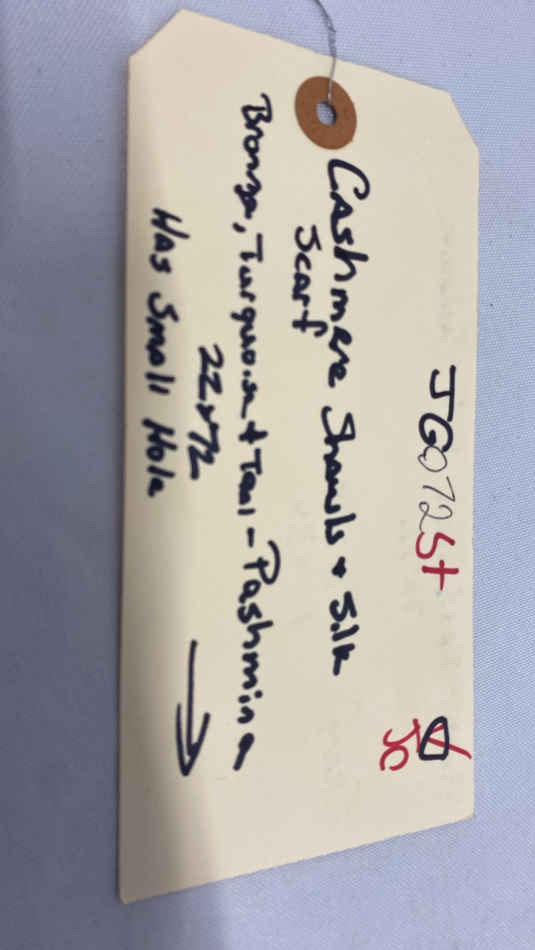 JG0725t
JC
Cashmere Shawls + Silk
Scarf
Bronze, Turquoise + Teal - Pashmina
22x72
Has Small Hole